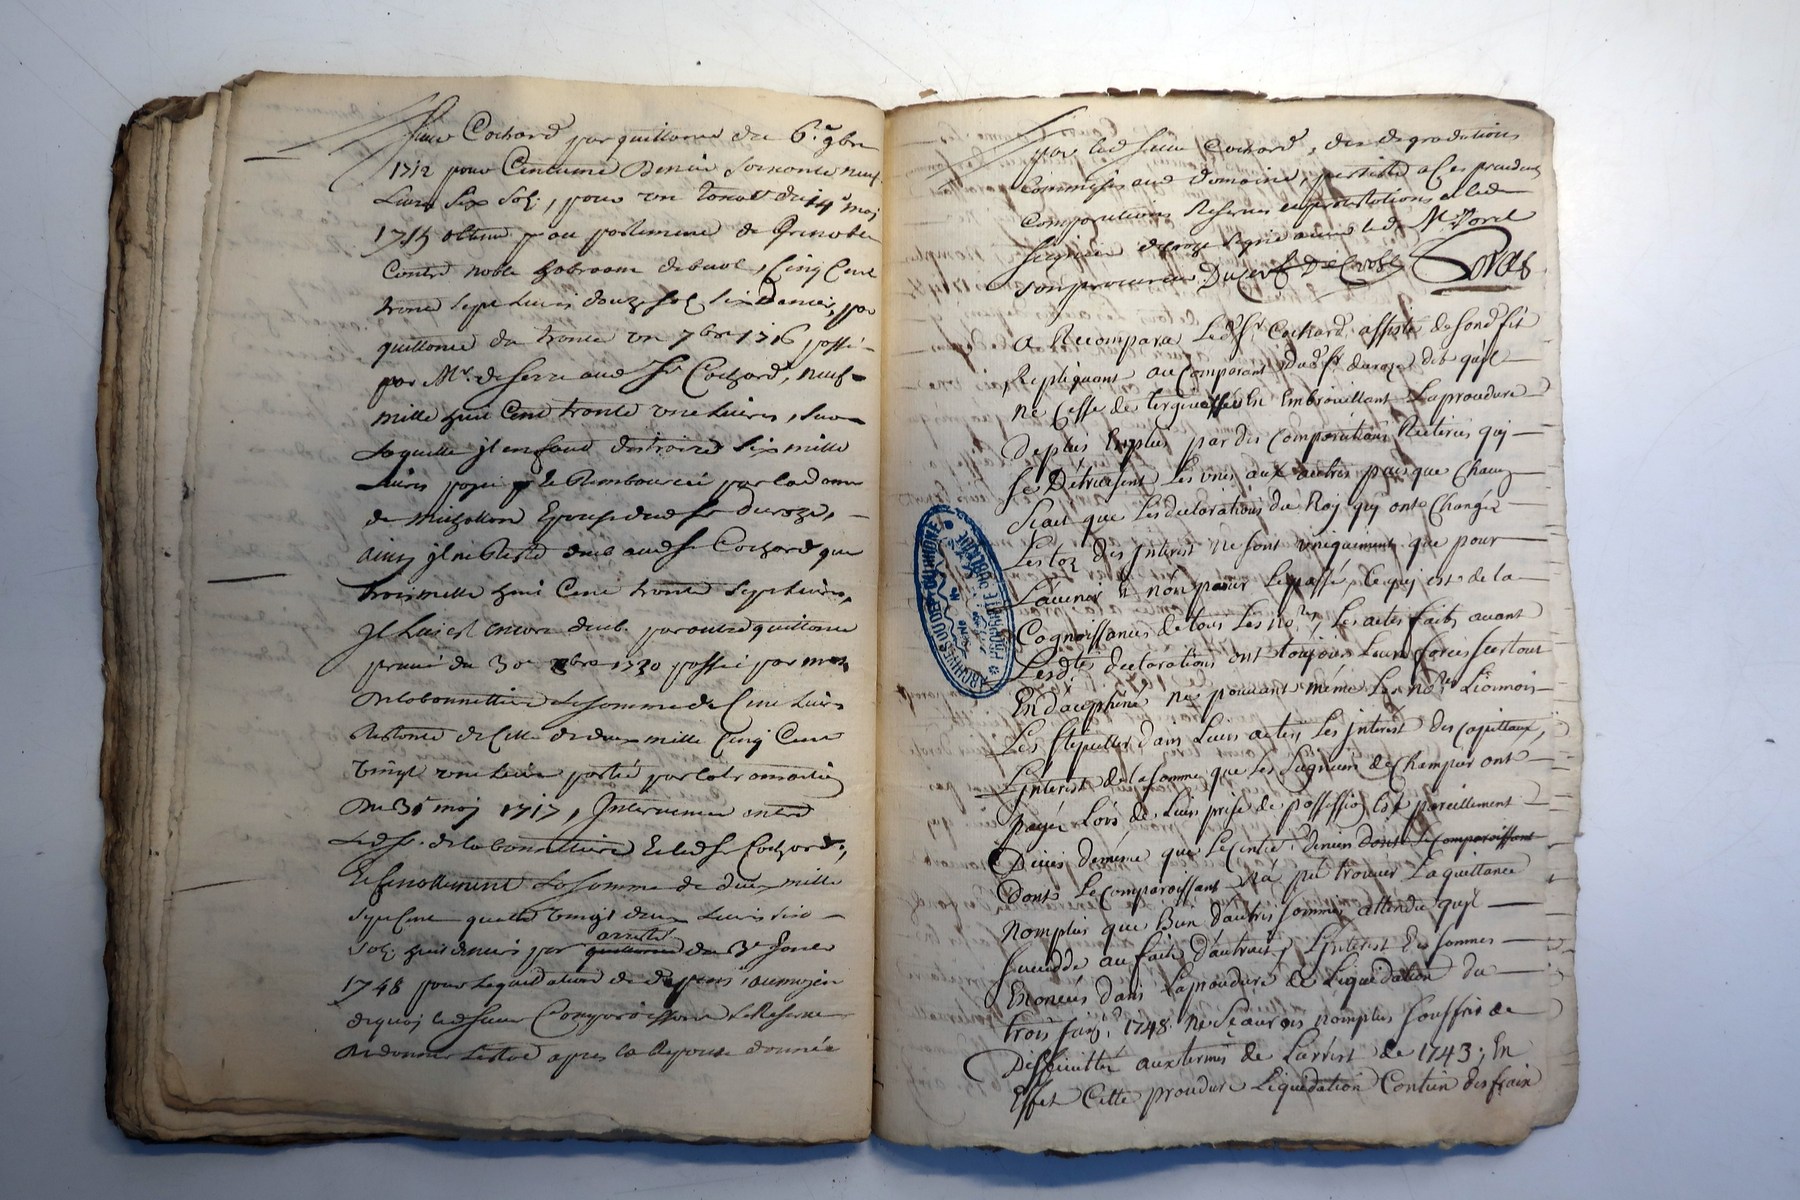 Sieur Cochard par quittance du 6.e 9bre
1712 pour Centieme Denier soixante neuf
Livres six sols, pour un
1715 obtenu par au parlement de Grenoble
Contre noble, Cinq Cent
trente sept Livres douze sols six deniers, par
quittance du trente un 7bre 1716 passé
par Mr. de Serre aud Sr Cochard, neuf
mille huit Cent trente une Livres, sur
Laquelle jl en faut distraire six mille
Livres payé le Rembourcé par la dame
de Epouse dud Sr duroze,
ainsy jl ne Reste deub aud Sr Cochard que
trois mille huit Cent trente sept Livres,
Jl Luy est encore deub par autre quittance
privée du 30e 1720 passée par
Delabonnetiere La somme de Cent Livres
Restante de Celle de deux mille Cinq Cent
vingt une Livre portée par
Du 31 may 1717, Intervenue entre
Led Sr. delabonnetiere Et led Sr Cochard,
Et finallement La somme de deux mille
sept Cent quatre vingt deux Livres
sols huit deniers par arresté quittance du 3e
1748 pour Liquidation de depens, aumoyen
dequoy led Sieur Comparoissant se Reserve
De donner L'estat apres la Reponse donnée
par led Sieur Cochard, des degradations
Commises aud Domaine, persiste a ses precedentes
Comparutions Reserves et protestations et led
Sieur duroze signé avec led Mr Dorel
son procureur. Duroze
A Recomparu Led. Sr. Cochard, assisté de sond. fit
Repliquant au Comparant Dud. Sr. duroze dit qu'jl
ne Cesse de tergiverser En Embrouillant La procedure
De plus En plus par des Comparutions Reiterées qui
se Detruisent Les unes aux autres puis que Chacun
Scait que Les declarations du Roy quj onts Changés
Les toz des Jnterest ne sont uniquement que pour
L'avenir & non pour Le passé, Ce quj est de la
Cognoissances de tous Les no.res, Les actes faits avant
Lesd.tes declarations ont toujours Leurs forces surtout
En dauphiné ne pouvant même Les no.res Lionnois
Les stipuller dans Leurs actes, Les Jnterest des Capittaux,
Jnterest de la somme que Les Seigneurs de Champier ont
payé Lors de Leurs prise de possession Est pareillement
Deües de meme que Le Centié. denier dont Le Comparoissant
Dont Le Comparoissant N'a pu trouver La quittance
Nomplus que Bien d'autres sommes attendu qu'jl
succedde au fait d'autruit, L'jnterest des sommes
Enoncées dans La procedure de Liquidation du
trois 1748. Ne Scaurois nomplus souffrir de
Difficultée aux termes de L'arrest de 1743; En
Effet Cette procedure Liquidation Contien des fraix
ARCHIVES DU DEPT DU RHONE
PROPRIETE PUBLIQUE